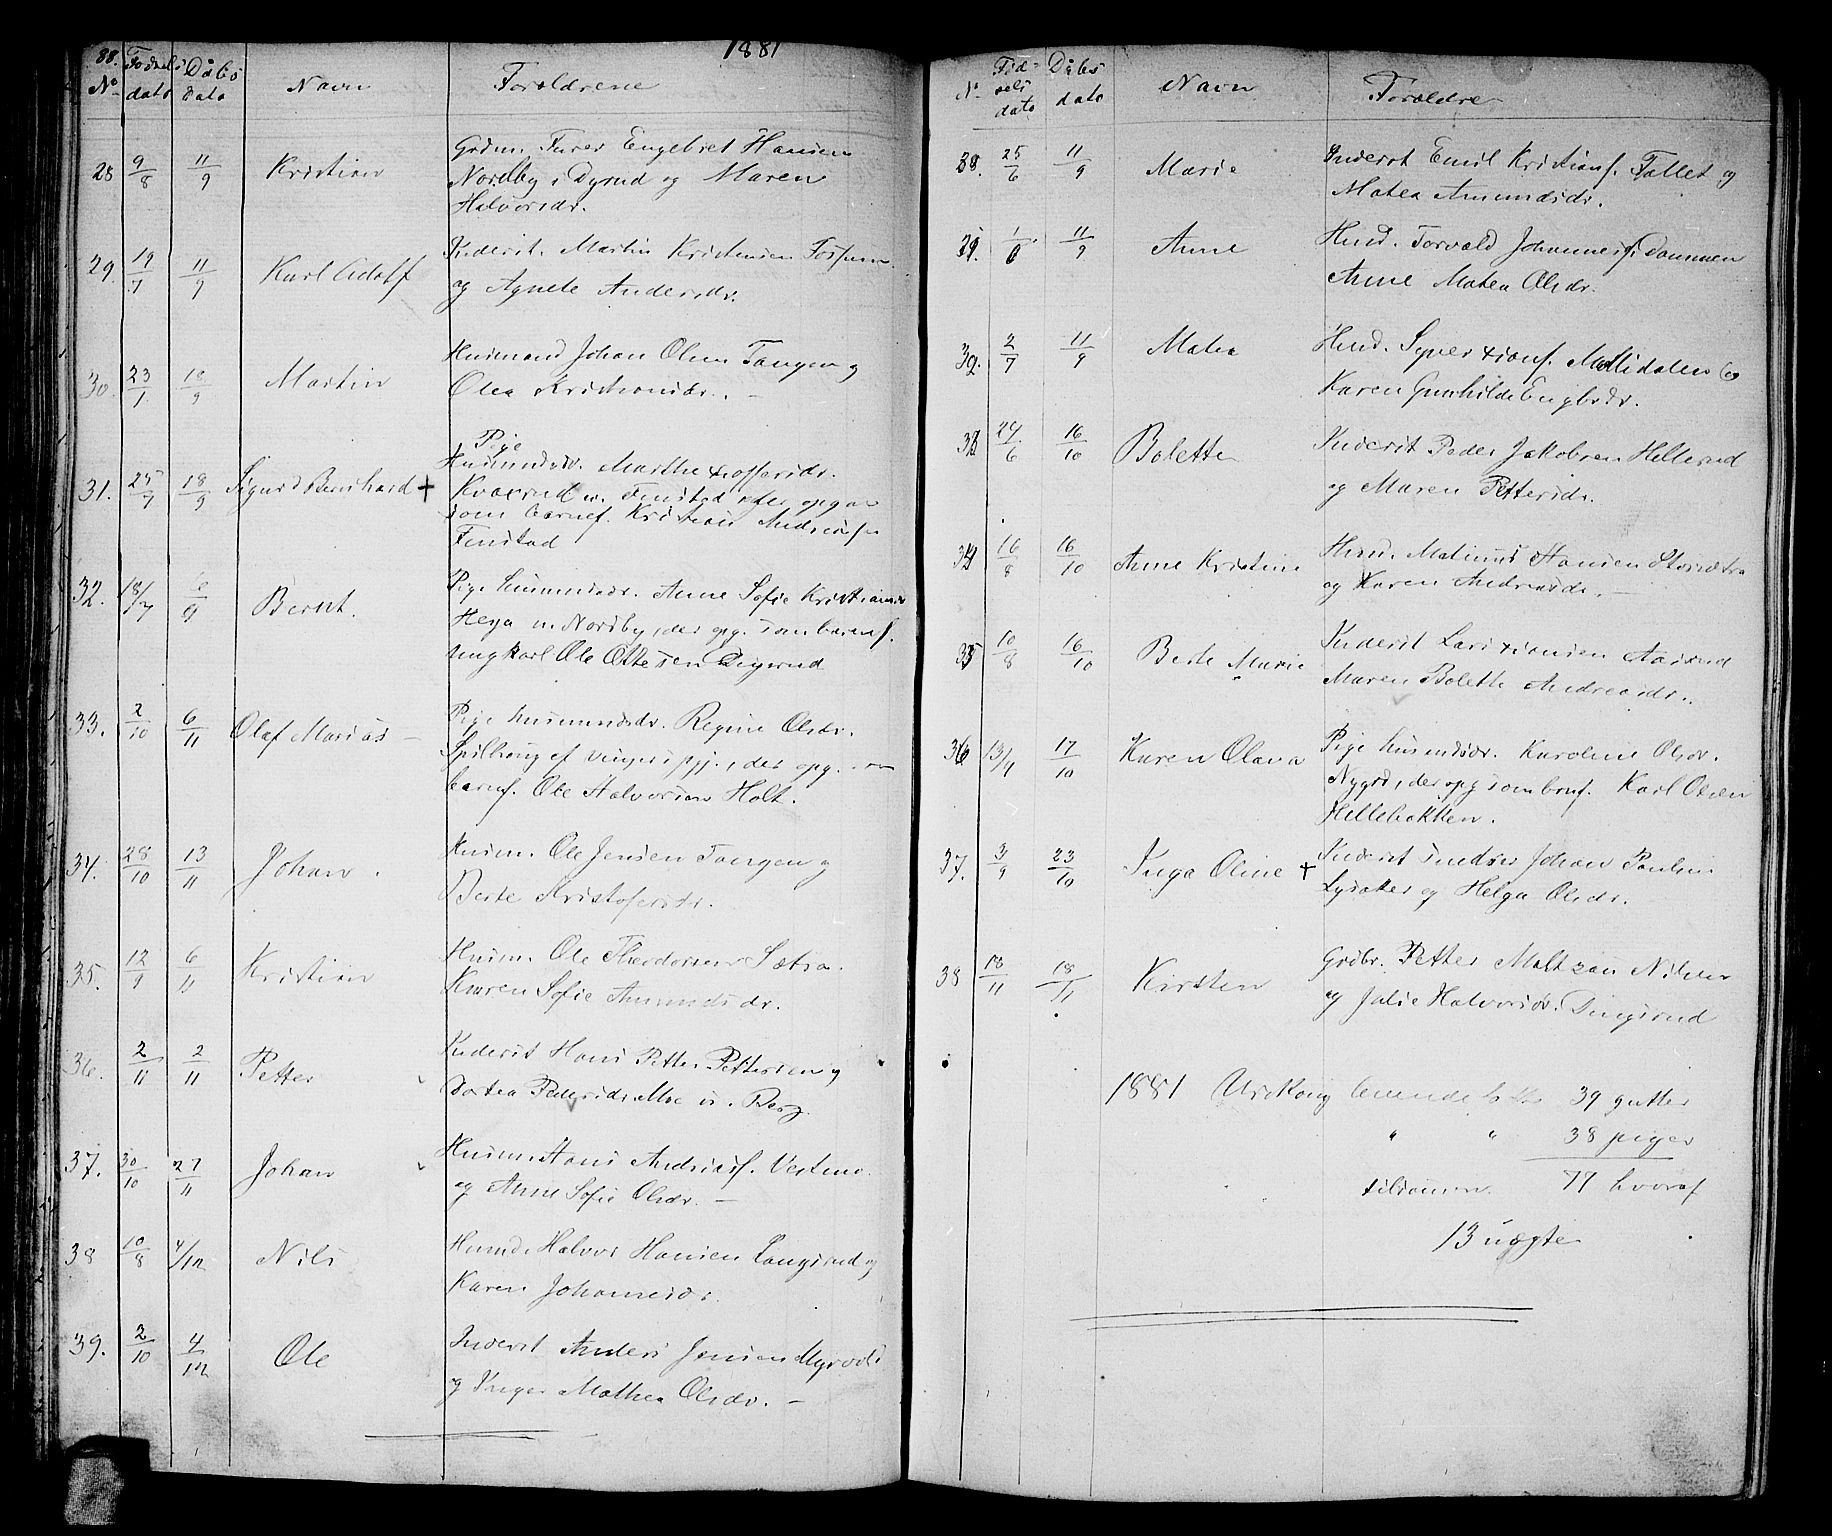 88.
1881
No Fødsels dato Dåbs dato Navn Forældrene
28 9/8 11/9 Kristian Grdm. Furer Engebret Hansen
Nordby i Dyrud og Maren
Halvorsdr.
29. 19/7 11/9 Karl Adolf Inderst. Martin Kristensen Fossum
og Agnete Andersdr.
30. 23/1 18/9 Martin Husmand Johan Olsen Tangen og
Olea Kristiansdr. —
31. 25/7 18/9 Sigurd Bernhard + Pige
Husmandsdr. Marthe Xoffersdr.
Kvaxrud u. Finstad der opgav
som barnef. Kristian Andreasf.
Finstad
32. 18/7 /9 Bernt. Pige husmandsdr. Anne Sofie Kristiansdr
Heya u. Nordby, der opg. som barnef.
ungkarl Ole Ottesen Digerud
33. 2/10 6/11 Olaf Marius — Pige husmandsdr. Regine Olsdr.
Spilhaug af Vingers pgj., der opg. som
barnf. Ole Halvorsen Holt.
34. 28/10 13/11 Johan. Husm. Ole Jensen Tangen og
Berte Kristofersdr.
35. 12/9 6/11 Kristian Husm. Ole Theodorsen Sætra.
Karen Sofie Amundsdr.
36. 2/11 2/11 Petter Inderst Hans Petter Pettersen og
Dortea Pedersdr. Moe u. Berg
37. 30/10 27/11 Johan Husm. Hans Andreasf. Vestmo
og Anne Sofie Olsdr. —
38 10/8 4/12 Nils Husmd. Halvor Hansen Langsrud og
Karen Johannesdr.
39. 2/10 4/12 Ole Inderst Anders Jensen Myrvold
og Inger Mathea Olsdr. —
No Fødsels dato Dåbs dato Navn Forældre
30. 25/6 11/9 Marie Inderst Emil Kristianf. Fallet og
Matea Amundsdr.
31. 1/6 11/9 Anne Hmd. Torvald Johannesf. Dammen
Anne Matea Olsdr.
32. 2/7 11/9 Matea Hmd. Syver Xianf. Mollidalen og
Karen Gunhilde Engbrdr.
33 24/6 16/10 Bolette Inderst Peder Jakobsen Hellerud
og Maren Pettersdr.
34 16/8 16/10 Anne Kristine Hmd. Matinus Hansen Storsætra
og Karen Andreasdr. —
35 10/8 16/10 Berte Marie Inderst Lars Xiansen Aasrud
Maren Bolette Andreasdr.
36 13/9 17/10 Karen Olava Pige husmdsdr. Karoline Olsdr.
Nygrd, der opg som brnf. Karl Olsen
Hillebakken.
37. 3/9 23/10 Inga Oline + Inderst Johan Paulsen
Lysaker og Helga Olsdr.
38 18/11 18/11 Kirsten Grdbr. Petter Maltzau Nilsen
og Julie Halvorsdr. Dingsrud
1881 Urskoug levende fødte 39 gutter
" " 38 piger
tilsammen 77 hvoraf
13 uægte